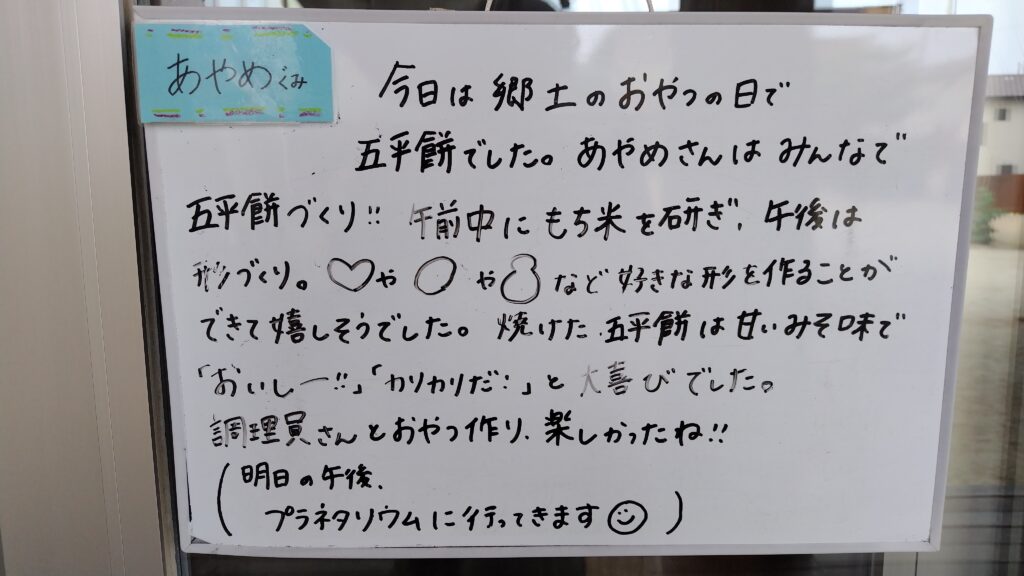 あやめぐみ
今日は郷土のおやつの日で
五平餅でした。あやめさんは みんなで
五平餅づくり!! 午前中にもち米を研ぎ、午後は
形づくり。♡や○やなど好きな形を作ることが
できて嬉しそうでした。焼けた五平餅は甘いみそ味で
「おいしー!!」「カリカリだ!」と大喜びでした。
調理員さんとおやつ作り、楽しかったね!!
(明日の午後、
プラネタリウムに行ってきます☺)